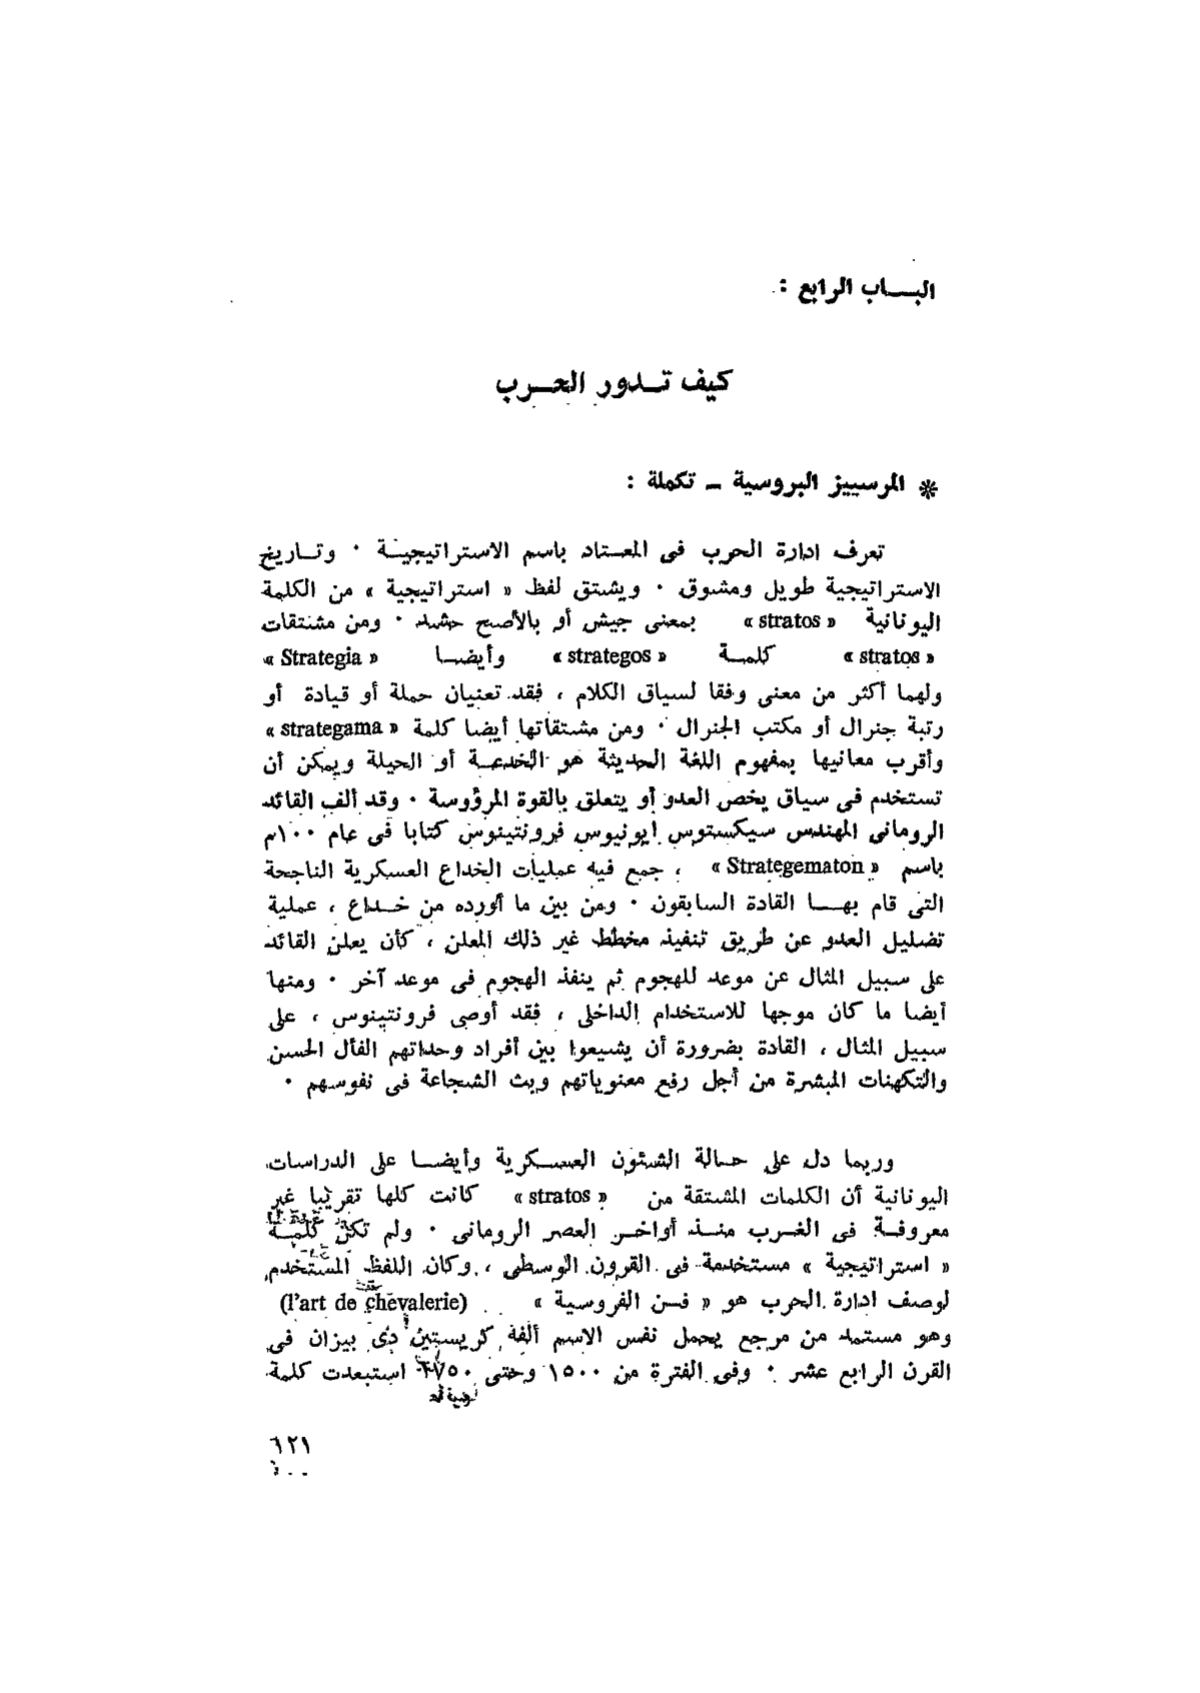 البــاب الرابع :
كيف تــدور الحــرب
* المرسييز البروسية ــ تكملة :
تعرف ادارة الحرب فى المعتاد باسم الاستراتيجيــة ٠ وتــاريخ
الاستراتيجية طويل ومشوق ٠ ويشتق لفظ « استراتيجية » من الكلمة
اليونانية « stratos » بمعنى جيش أو بالأصح حشد ٠ ومن مشتقات
« stratos » كلمــة « strategos » وأيضــا « Strategia »
ولهما أكثر من معنى وفقا لسياق الكلام ، فقد تعنيان حملة أو قيادة أو
رتبة جنرال أو مكتب الجنرال ٠ ومن مشتقاتها أيضا كلمة « strategama »
وأقرب معانيها بمفهوم اللغة الحديثة هو الخدعــة أو الحيلة ويمكن أن
تستخدم فى سياق يخص العدو أو يتعلق بالقوة المرؤوسة ٠ وقد ألف القائد
الرومانى المهندس سيكستوس ايونيوس فرونتينوس كتابا فى عام ١٠٠م
باسم « Strategematon » ، جمع فيه عمليات الخداع العسكرية الناجحة
التى قام بهــا القادة السابقون ٠ ومن بين ما أورده من خــداع ، عملية
تضليل العدو عن طريق تنفيذ مخطط غير ذلك المعلن ، كأن يعلن القائد
على سبيل المثال عن موعد للهجوم ثم ينفذ الهجوم فى موعد آخر ٠ ومنها
أيضا ما كان موجها للاستخدام الداخلى ، فقد أوصى فرونتينوس ، على
سبيل المثال ، القادة بضرورة أن يشيعوا بين أفراد وحداتهم الفأل الحسن
والتكهنات المبشرة من أجل رفع معنوياتهم وبث الشجاعة فى نفوسهم ٠
وربما دل على حــالة الشئون العســكرية وأيضــا على الدراسات
اليونانية أن الكلمات المشتقة من « stratos » كانت كلها تقريبا غير
معروفــة فى الغــرب منــذ أواخــر العصر الرومانى ٠ ولم تكن كلمــة
« استراتيجية » مستخدمة فى القرون الوسطى ، وكان اللفظ المستخدم
لوصف ادارة الحرب هو « فــن الفروسية » (l'art de chevalerie)
وهو مستمد من مرجع يحمل نفس الاسم ألفه كريستين دى بيزان فى
القرن الرابع عشر ٠ وفى الفترة من ١٥٠٠ وحتى ١٧٥٠ استبعدت كلمة
٦٢١